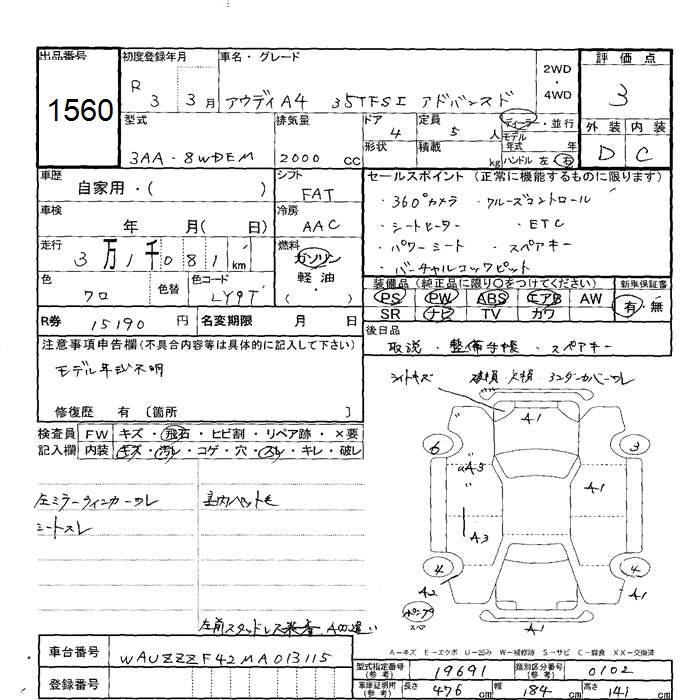 出品番号
1560
初度登録年月
R 3 3月
車名・グレード
アウディA4 35TFSI アドバンスド
2WD
・
4WD
評価点
3
外装 内装
D C
型式
3AA-8WDEM
排気量
2000 CC
ドア
4
形状
定員
5 人
積載
kg
ディーラー・並行
モデル
年式 年
ハンドル 左・右
車歴
自家用・( )
シフト
FAT
車検
年 月( 日)
冷房
AAC
走行
3万1千081km
燃料
ガソリン
軽油
・
( )
色
クロ
色替
色コード
LY9T
R券 15190 円
名変期限 月 日
セールスポイント(正常に機能するものに限ります)
・360°カメラ ・クルーズコントロール
・シートヒーター ・ETC
・パワーシート ・スペアキー
・バーチャルコックピット
装備品(純正品に限り○をつけてください)
PS PW ABS エアB AW
SR ナビ TV カワ
新車保証書
有・無
後日品
取説・整備手帳・スペアキー
注意事項申告欄(不具合内容等は具体的に記入して下さい)
モデル年式不明
修復歴 有〔箇所 〕
検査員
記入欄
FW キズ・飛石・ヒビ割・リペア跡・×要
内装 キズ・汚レ・コゲ・穴・スレ・キレ・破レ
左ミラーウィンカーワレ
シートスレ
車内ペット毛
左前スタッドレス装着
ライトキズ
A1
6
3
A3
A1
A3
4
4
A2
A1
A1
スペア
A-キズ E-エクボ U-凹み W-補修跡 S-サビ C-腐食 XX-交換済
車台番号
WAUZZZF42MA013115
登録番号
型式指定番号
(参考)
19691
類別区分番号
(参考)
0102
車庫証明用
(参考)
長さ 476 cm
幅 184 cm
高さ 141 cm